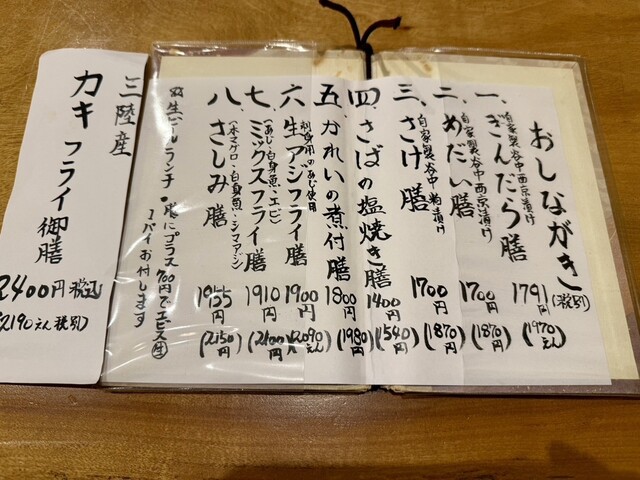 おしながき(税別)
一、ぎんだら膳 1791円 (1970えん)
自家製谷中西京漬け
二、めだい膳 1700円 (1870円)
自家製谷中西京漬け
三、さけ膳 1700円 (1870円)
自家製谷中粕漬け
四、さばの塩焼き膳 1400円 (1540円)
五、かれいの煮付膳 1800円 (1980円)
六、生アジフライ膳 1900円 (2,090えん)
刺身用のあじ使用
七、ミックスフライ膳 1910円 (2100円)
(あじ・白身魚・エビ)
八、さしみ膳 1955円 (2,150円)
(本マグロ・白身魚・シマアジ)
生ビールランチ・膳にプラス700円でエビス㊗
1パイお付します
三陸産
カキフライ御膳
2400円税込
2190えん税別)